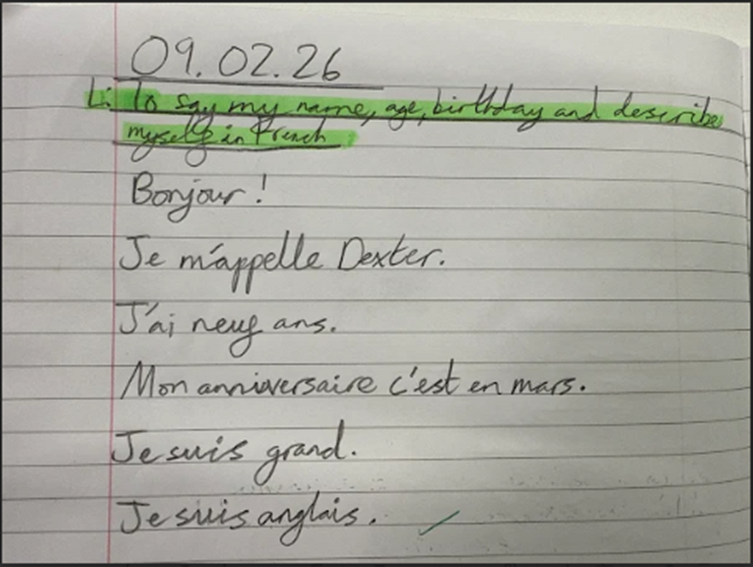 09.02.26
L: To say my name, age, birthday and describe
myself in French
Bonjour !
Je m'appelle Dexter.
J'ai neuf ans.
Mon anniversaire c'est en mars.
Je suis grand.
Je suis anglais.